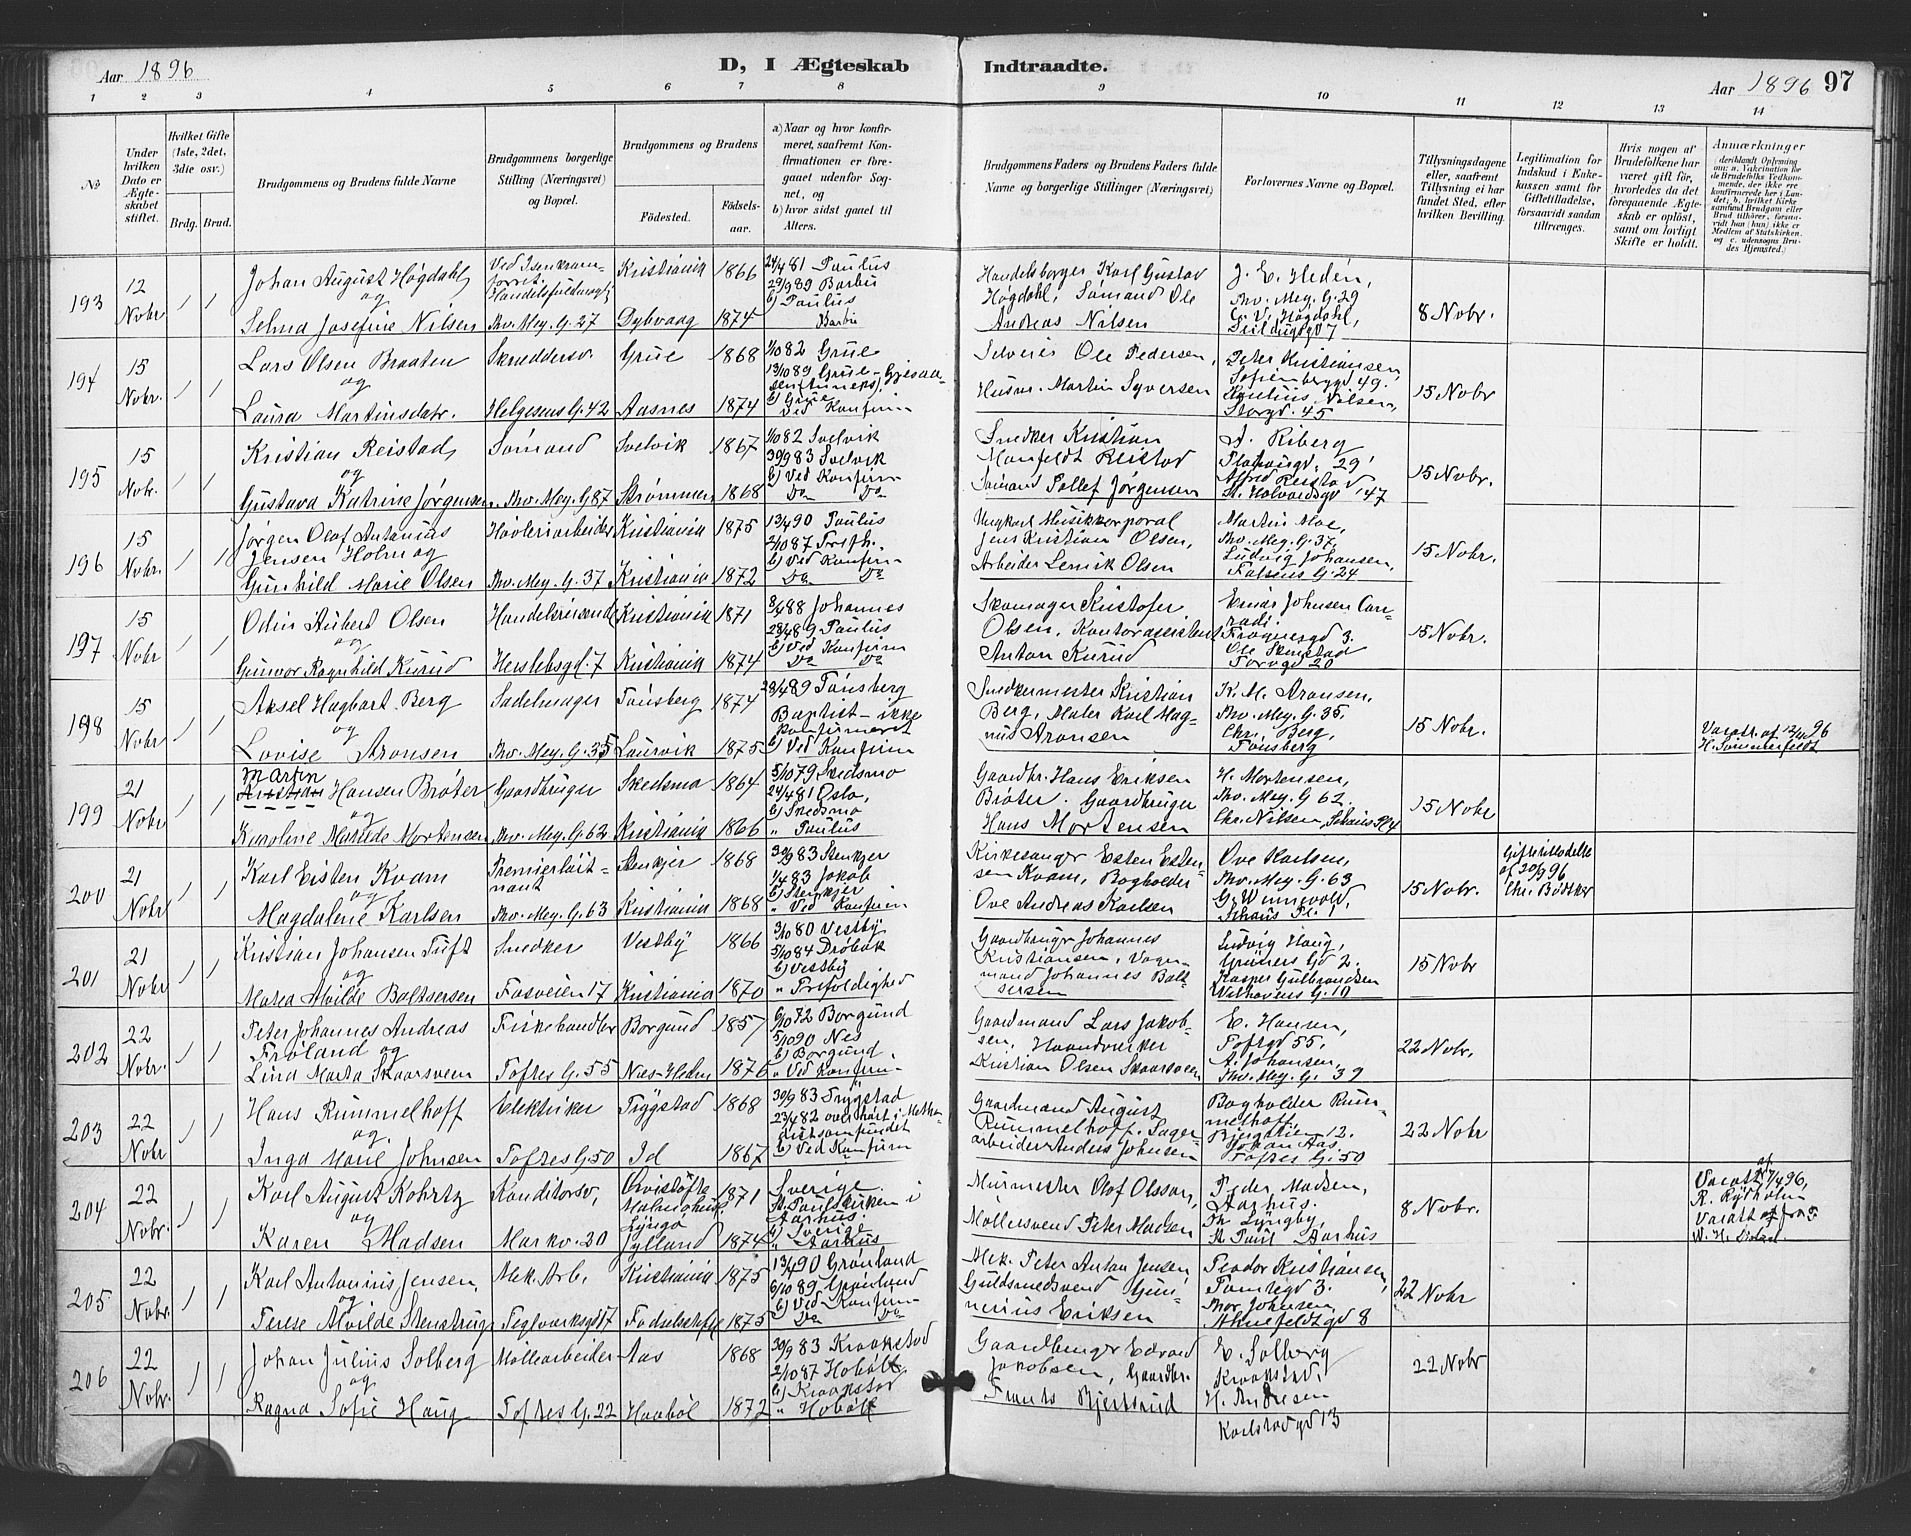 Aar 1896
D, I Ægteskab
Indtraadte.
Aar 1896 97
1 2 3 4 5 6 7 8 9 10 11 12 13 14
No
Under hvilken Dato er Ægteskabet stiftet.
Hvilket Gifte (1ste, 2det, 3die osv.)
Brdg. Brud.
Brudgommens og Brudens fulde Navne
Brudgommens borgerlige Stilling (Næringsvei) og Bopæl.
Brudgommens og Brudens
Födested.
Födselsaar.
a) Naar og hvor konfirmeret, saafremt Konfirmationen er foregaaet udenfor Sognet, og
b) hvor sidst gaaet til Alters.
Brudgommens Faders og Brudens Faders fulde Navne og borgerlige Stillinger (Næringsvei)
Forlovernes Navne og Bopæl.
Tillysningsdagene eller, saafremt Tillysning ei har fundet Sted, efter hvilken Bevilling.
Legitimation for Indskud i Enkekassen samt for Giftetilladelse, forsaavidt saadan tiltrænges.
Hvis nogen af Brudefolkene har været gift før, hvorledes da det foregaaende Ægteskab er opløst, samt om lovligt Skifte er holdt.
Anmærkninger
193 12 Novbr / /
Johan August Høgdahl
og
Selma Josefine Nilsen
Thv. Mey. G. 27
Kristiania 1866
Dybvaag 1874
24/4 81 Paulus
29/9 89 Barbu
b) Paulus
Barbu
Handelsborger Karl Gustav
Høgdahl, Sømand Ole
Andreas Nilsen
J. E. Hedén,
Thv. Mey. G. 29
G. V. Høgdahl,
8 Novbr.
194 15 Novbr. / /
Lars Olsen Braaten
og
Laura Martinsdatr.
Skreddersv
Helgesens G. 42
Grue 1868
Aasnes 1874
1/10 82 Grue
13/10 89 Grue
b) Grue
Ved Konfirm
Selveier Ole Pedersen,
Husm. Martin Syversen
Peter Kristiansen
Sofienberggd 49.
Nilsen,
Storgd. 45
15 Novbr
195 15 Novbr. / /
Kristian Reistad,
og
Gustava Katrine Jørgensen
Sømand
Thv. Mey. G. 87
Svelvik 1867
Strømmen 1868
1/10 82 Svelvik
30/9 83 Svelvik
b) Ved Konfirm
Do Do
Snedker Kristian
Manfeldt Reistad
Sømand Tollef Jørgensen
A. Riberg
29,
Alfred Reistad
St. Halvardsgd 147
15 Novbr.
196 15 Novbr. / /
Jørgen Olaf Antonius
Jensen Holm og
Gunhild Marie Olsen
Høvleriarbeider
Thv. Mey. G. 37
Kristiania 1875
Kristiania 1872
13/4 90 Paulus
2/10 87 Trefh.
b) Ved Konfirm
Do Do
Ungkarl Musikkorporal
Jens Kristian Olsen,
Arbeider Lenrik Olsen
Martin Moe,
Thv. Mey. G. 37,
Ludvig Johansen,
Falsens G. 24
15 Novbr.
197 15 Novbr / /
Odin Aubert Olsen
og
Gunvor Ragnhild Kurud
Handelsreisende
Herslebsgd. 7
Kristiania 1871
Kristiania 1874
8/4 88 Johannes
28/4 89 Paulus
b) Ved Konfirm
Do Do
Skomager Kristofer
Olsen, Kontorassistent
Anton Kurud
Einar Johnsen Conradi.
Frognergd 3.
Ole Skinstad
Torvgd 20
15 Novbr.
198 15 Novbr / /
Aksel Hagbart Berg
og
Lovise Aronsen
Sadelmager
Thv. Mey. G. 35
Tønsberg 1874
Laurvik 1875
28/4 89 Tønsberg
Baptist - ikke
konfirmeret
b) Ved Konfirm
Snedkermester Kristian
Berg, Maler Karl Magnus Aronsen
K. M. Aronsen,
Thv. Mey. G. 35,
Chr. Berg,
Tønsberg
15 Novbr.
Varatt. af 12/11 96
H. Sommerfeldt
199 21 Novbr / /
Martin
Kristian Hansen Brøter
og
Karoline Matilde Mortensen
Gaardbruger
Thv. Mey. G. 62
Skedsmo 1864
Kristiania 1866
5/10 79 Skedsmo
24/4 81 Oslo,
b) Skedsmo
" Paulus
Gaardbr. Hans Eriksen
Brøter. Gaardbruger
Hans Mortensen
H. Mortensen,
Thv. Mey. G 62.
Chr. Nilsen, Schous Pl 4
15 Novbr
200 21 Novbr / /
Karl Eisten Kvam
og
Magdalene Karlsen
Premierløitnant
Thv. Mey. G. 63
Stenkjer 1868
Kristiania 1868
30/9 83 Stenkjer
1/4 83 Jakob
b) Stenkjer
" Ved Konfirm
Kirkesanger Esten Estensen Kvam, Bogholder
Ove Andreas Karlsen
Ove Karlsen,
Thv. Mey. G. 63
G. Wennevold,
Schous Pl. 1
15 Novbr.
Giftetilladelse
af 20/9 96
Chr. Bødtker
201 21 Novbr / /
Kristian Johansen Tuft
og
Marta Alvilde Baltsersen
Snedker
Fosveien 17
Vestby 1866
Kristiania 1870
3/10 80 Vestby
5/10 84 Drøbak
b) Vestby
" Trefoldighed
Gaardbruger Johannes
Kristiansen, Vognmand Johannes Baltsersen
Ludvig Haug,
Grüners Gd 2.
Kasper Gulbrandsen
Welhavens G. 10
15 Novbr
202 22 Novbr. / /
Peter Johannes Andreas
Frøland og
Lina Marta Skaarsveen
Fiskehandler
Toftes G. 55
Borgund 1857
Næs-Hedm 1876
6/10 72 Borgund
5/10 90 Nes
b) Borgund
" Ved Konfirm.
Gaardmand Lars Jakobsen, Haandverker
Kristian Olsen Skaarsveen
E. Hansen,
Toftgd 55.
A. Johansen,
Thv. Mey. G. 39
22 Novbr.
203 22 Novbr / /
Hans Rummelhoff
og
Inga Marie Johnsen
Elektriker
Toftes G. 50
Trygstad 1868
Id 1867
30/9 83 Trygstad
23/4 82 overhørt i Methodistsamfundet
b) Ved Konfirm
Gaardmand August
Rummelhoff. Sagarbeider Anders Johnsen
Bogholder Rummelhoff
12.
Johan Aas,
Toftes G. 50
22 Novbr
204 22 Novbr. / /
Karl August Kohrtz
og
Karen Madsen
Konditorsv,
Markv. 30
1871
Lyngø
Jylland 1874
Sverige.
St. Paulskirken i
Aarhus.
b) Sverige
" Aarhus
Murmester Olof Olsson,
Møllersvend Peter Madsen
Peder Madsen,
Aarhus.
Th. Lyngby,
St. Paul Aarhus
8 Novbr.
Varatt af 7/4 96,
R. Rydholm
Varatt fra
205 22 Novbr. / /
Karl Antonius Jensen,
og
Terese Alvilde Stenstrup
Mek. Arb.
Teglverksgd 17
Kristiania 1875
Fødselsstiftel 1875
13/4 90 Grønland
6/10 89 Grønland
b) Ved Konfirm
Do Do
Mek. Peter Anton Jensen
Guldsmedsvend Gunnerius Eriksen
Teodor Kristiansen,
Tomtegd 3.
Thor Johnsen,
Ahlefeldtgd 8
22 Novbr
206 22 Novbr. / /
Johan Julius Solberg
og
Ragna Sofie Haug
Møllearbeider
Toftes G. 22
Aas 1868
Haabøl 1872
30/9 83 Kraakstad
2/10 87 Hobøl
b) Kraakstad
" Hobøl
Gaardbruger Edvard
Jakobsen, Gaardbr.
Frants Bjertsrud
E. Solberg
Kraakstad,
H. Andresen
Karlstadgd 13
22 Novbr